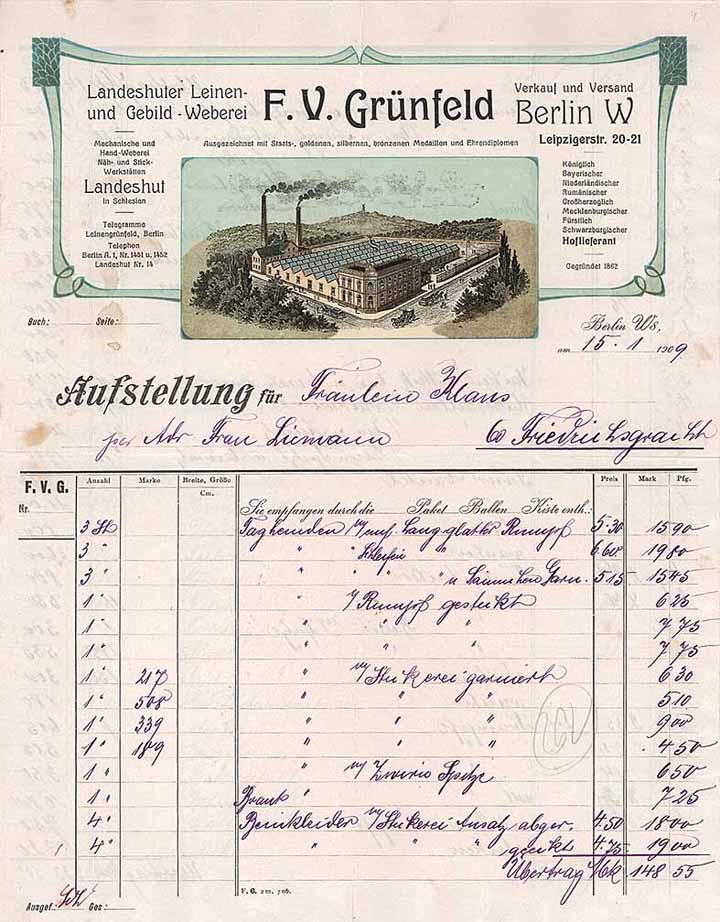 Landeshuter Leinen-
und Gebild-Weberei
F. V. Grünfeld
Verkauf und Versand
Berlin W
Leipzigerstr. 20-21
Ausgezeichnet mit Staats-, goldenen, silbernen, bronzenen Medaillen und Ehrendiplomen
Mechanische und
Hand-Weberei
Näh- und Stick-
Werkstätten
Landeshut
in Schlesien
Telegramme
Leinengrünfeld, Berlin
Telephon
Berlin A. 1, Nr. 1451 u. 1452
Landeshut Nr. 14
Königlich
Bayerischer
Niederländischer
Rumänischer
Großherzoglich
Mecklenburgischer
Fürstlich
Schwarzburgischer
Hoflieferant
Gegründet 1862
Buch: Seite:
Berlin W8,
am 15. 1 1909
Aufstellung für Fräulein Klaus
per Adr Frau Liemann 60 Friedrichsgracht
F. V. G. Anzahl Marke Breite, Größe Cm. Preis Mark Pfg.
Nr. Sie empfangen durch die Paket Ballen Kiste enth.:
3 St Taghemden Lang glatter Rumpf 5.30 15 90
3 " " " Schleifen " 6.60 19 80
3 " " " " u Säumchen Garn. 5.15 15 45
1 " " Rumpf gestickt 6 25
1 " " " " 7 75
1 " " " " 7 75
1 " 217 " Stickerei garniert 6 30
1 " 508 " " " 5 10
1 " 339 " " " 9 00
1 " 189 " " " 4 50
1 " " Spitze 6 50
1 " Braut " 7 25
4 " Beinkleider Stickerei Ansatz abger. 4.50 18 00
4 " " " " 4.75 19 00
Übertrag Mk 148 55
F. G. 2m. 706.
Ausgef.: Ges: